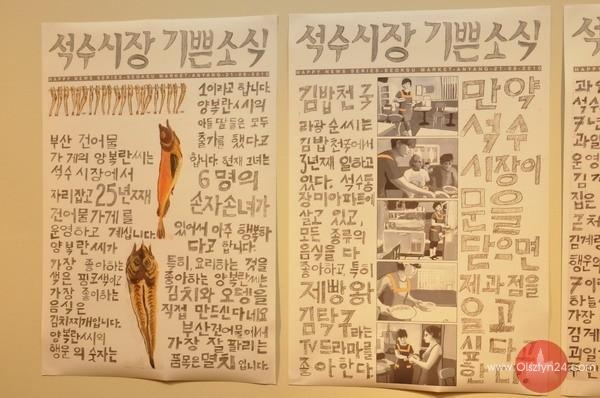 석수시장 기쁜소식
HAPPY NEWS SERIES-SEOKSU MARKET-ANYANG-21-08-2010
부산 건어물
가게의 양복란씨는
석수시장에서
자리잡고 25년째
건어물가게를
운영하고 계십니다.
양복란씨가
가장 좋아하는
색은 핑크색이고
가장 좋아하는
음식은
김치찌개입니다.
양복란씨의
행운의 숫자는
1이라고 합니다.
양복란씨의
아들 딸들은 모두
출가를 했다고
합니다. 현재 그녀는
6명의
손자손녀가
있어서 아주 행복하
다고 합니다.
특히, 요리하는 것을
좋아하는 양복란씨는
김치와 오뎅을
직접 만드신다네요
부산건어물에서
가장 잘 팔리는
품목은 멸치입니다.
석수시장 기쁜소식
HAPPY NEWS SERIES-SEOKSU MARKET-ANYANG-21-08-2010
김밥천국
라광순씨는
김밥천국에서
3년째 일하고
있다. 석수동
장미아파트에
살고 있고,
모든 종류의
음식을 다
좋아하고 특히
제빵왕
김탁구라는
TV드라마를
좋아한다.
만약
석수
시장이
문을
닫으면
제과점을
열고
싶다고
한다.
www.Olsztyn24.com